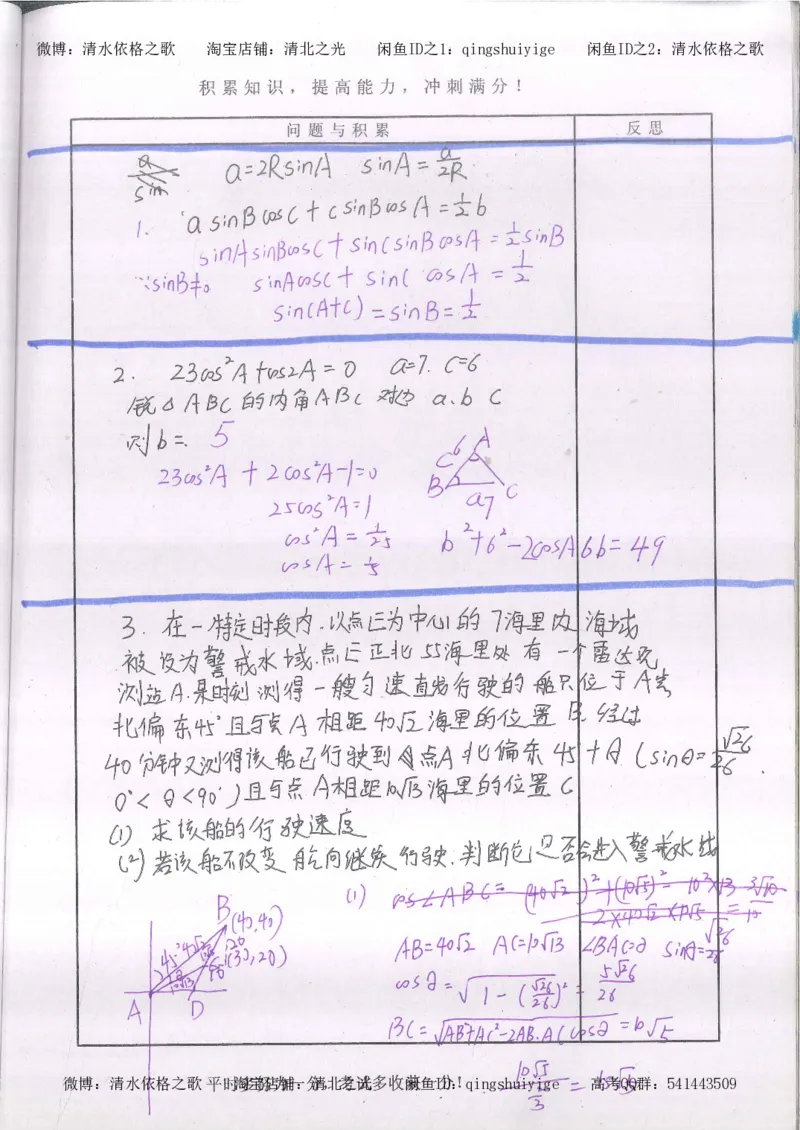 微博：清水依格之歌 淘宝店铺：清北之光 闲鱼ID之1：qingshuiyige 闲鱼ID之2：清水依格之歌
积累知识，提高能力，冲刺满分！
问题与积累 反思
a=2RsinA sinA=a/2R
1. a sinBcosC+csinBcosA=1/2b
sinAsinBcosC+sinCsinBcosA=1/2sinB
∵sinB≠0 sinAcosC+sinC cosA=1/2
sin(A+C)=sinB=1/2
2. 23cos²A+cos2A=0 a=7. c=6
锐△ABC的内角ABC对边 a.b c
则b= 5
23cos²A+2cos²A-1=0
25cos²A=1
cos²A=1/25
cosA=1/5
b²+6²-2cosA6b=49
A
c6
B C
a7
3. 在一特定时段内.以点E为中心的7海里内海域
被设为警戒水域.点E正北55海里处有一个雷达观
测站A.某时刻测得一艘匀速直线行驶的船只位于A
北偏东45°且与点A相距40√2海里的位置B.经过
40分钟又测得该船已行驶到点A北偏东45°+θ(sinθ=√26/26.
0°<θ<90°)且与点A相距10√13海里的位置C
(1) 求该船的行驶速度
(2) 若该船不改变航向继续行驶.判断它是否会进入警戒水域
(1) cos∠ABC=
AB=40√2 AC=10√13 ∠BAC=θ sinθ=√26/26
cosθ=√1-(√26/26)²=5√26/26
BC=√AB²+AC²-2AB.ACcosθ=10√5
B(40,40)
A D
微博：清水依格之歌 淘宝店铺：清北之光 闲鱼ID：qingshuiyige 高考QQ群：541443509